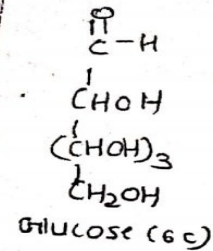 O
C-H
CHOH
(CHOH)3
CH2OH
Glucose (6C)